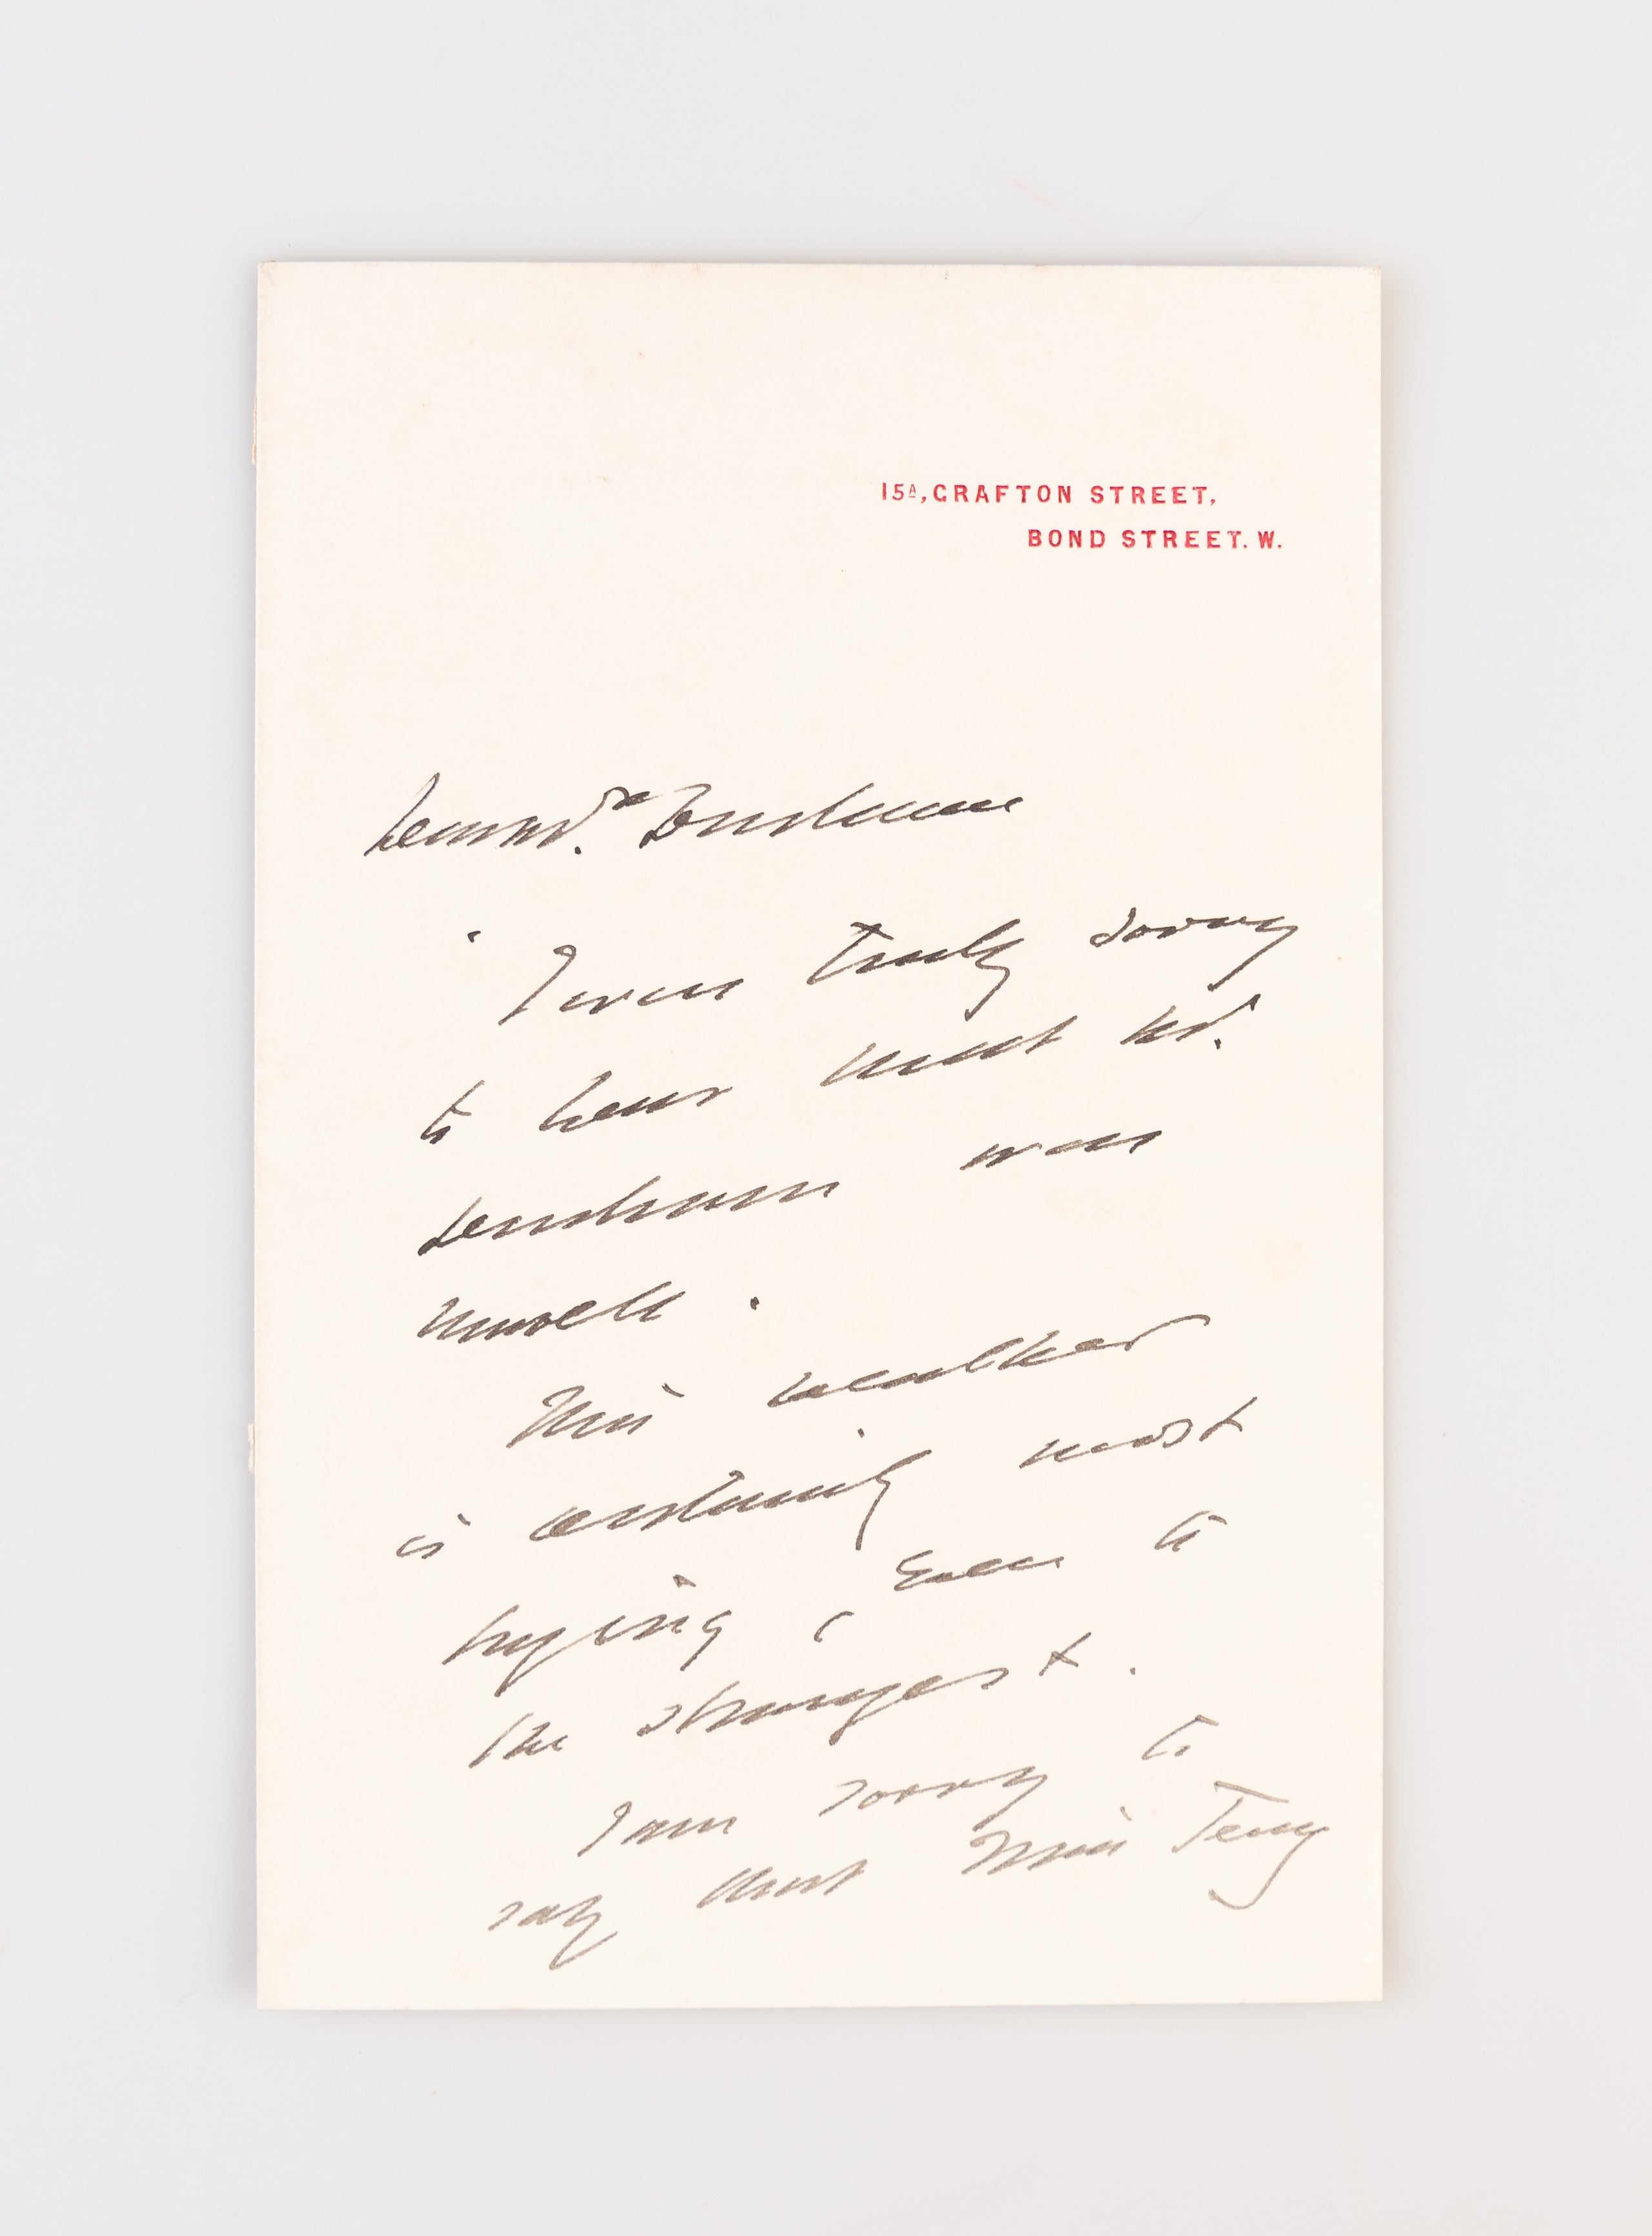 15A, GRAFTON STREET,
BOND STREET. W.
Dear Mrs.
I was truly sorry
to hear that Mr.
was
unwell.
This weather
is certainly most
trying, even to
the strongest.
I am sorry to
say that Miss Terry